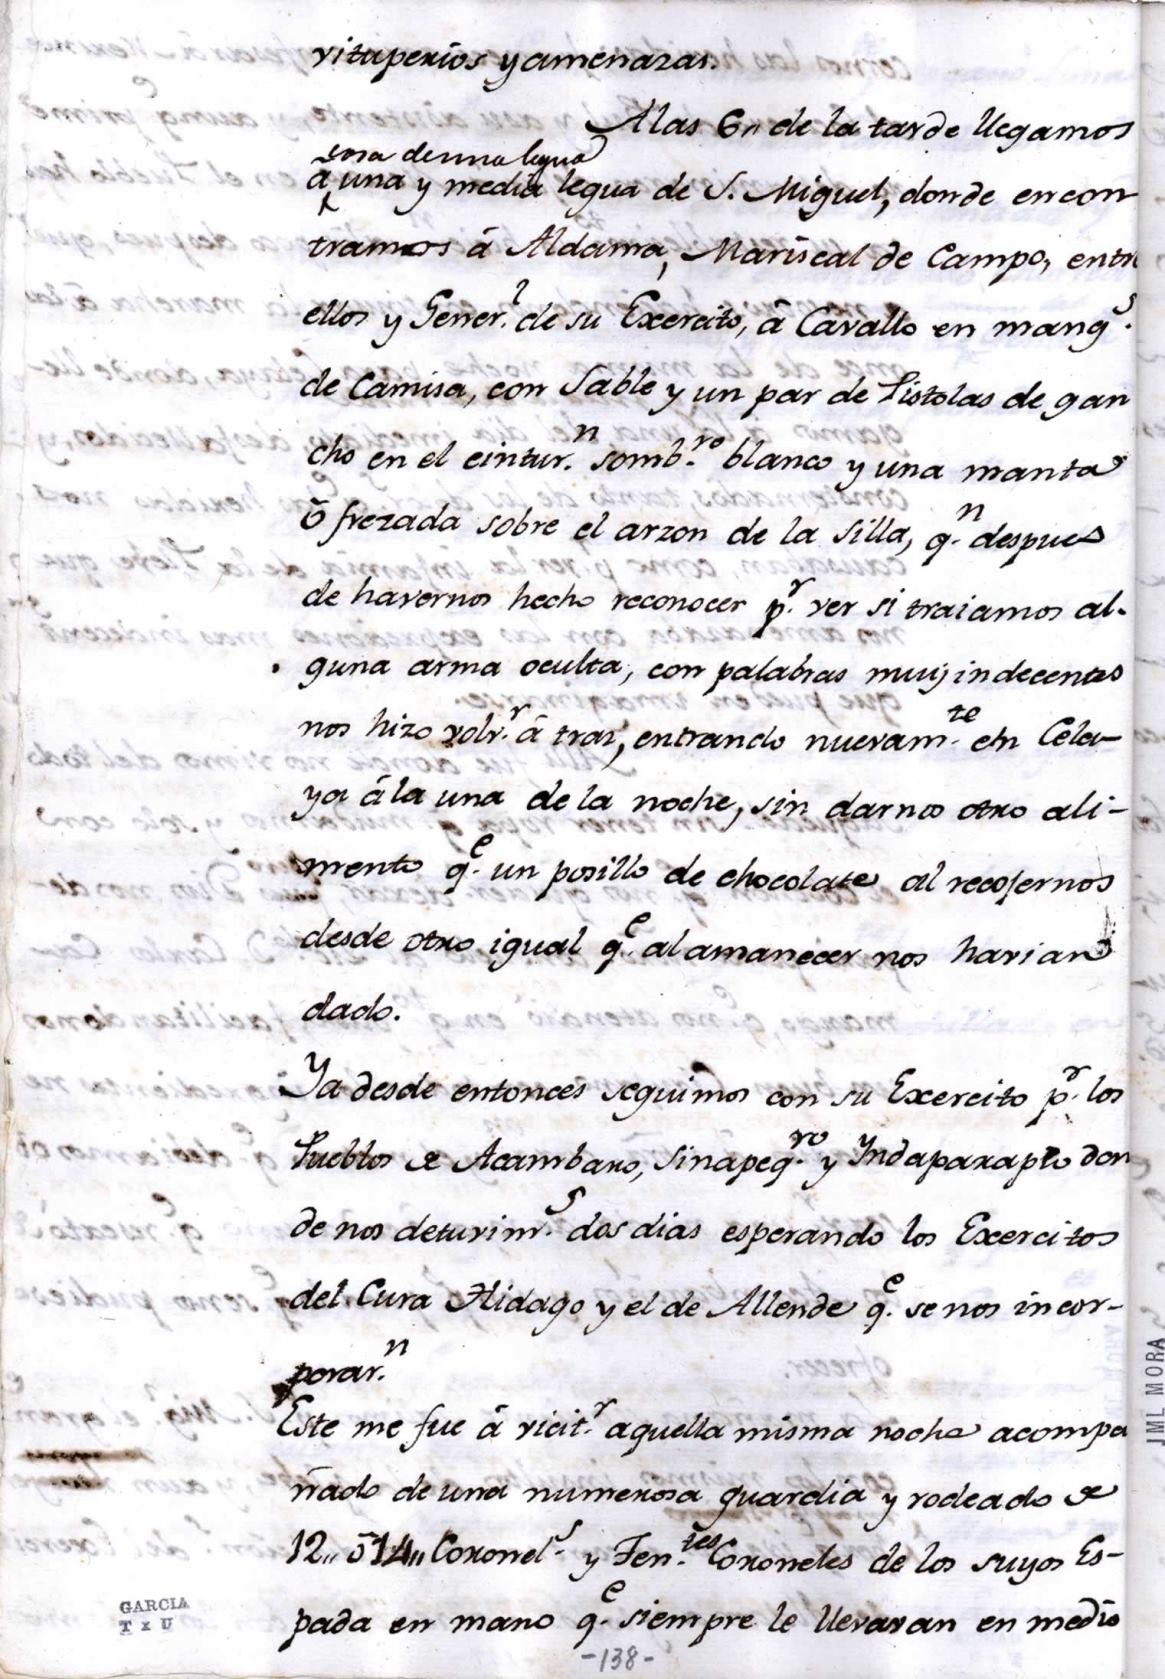 vituperios y amenazas.
Alas 6,, de la tarde llegamos
cosa de una legua
á una y media legua de S. Miguel, donde encon
tramos á Aldama, Mariscal de Campo, entre
ellos y Gener.l de su Exercito, á Cavallo en mang.s
de Camisa, con Sable y un par de Pistolas de gan
cho en el cintur.n somb.ro blanco y una manta
ó frezada sobre el arzon de la silla, q.n despues
de havernos hecho reconocer p.r ver si traiamos al-
guna arma oculta, con palabras muy indecentes
nos hizo volv.r á traz, entrando nuevam.te en Cela-
ya á la una de la noche, sin darnos otro ali-
mento q.e un posillo de chocolate al recojernos
desde otro igual q.e al amanecer nos havian
dado.
Ya desde entonces seguimos con su Exercito p.r los
Pueblos de Acambaro, Sinapeq.ro y Yndaparapeo don
de nos detuvim.s dos dias esperando los Exercitos
del Cura Hidago y el de Allende q.e se nos incor-
porar.n
Este me fue á vicit.r aquella misma noche acompa
ñado de una numerosa guardia y rodeado de
12,, ó 14,, Coronel.s y Ten.tes Coroneles de los suyos Es-
pada en mano q.e siempre le llevavan en medio
-138-
GARCIA
T x U
JML MORA